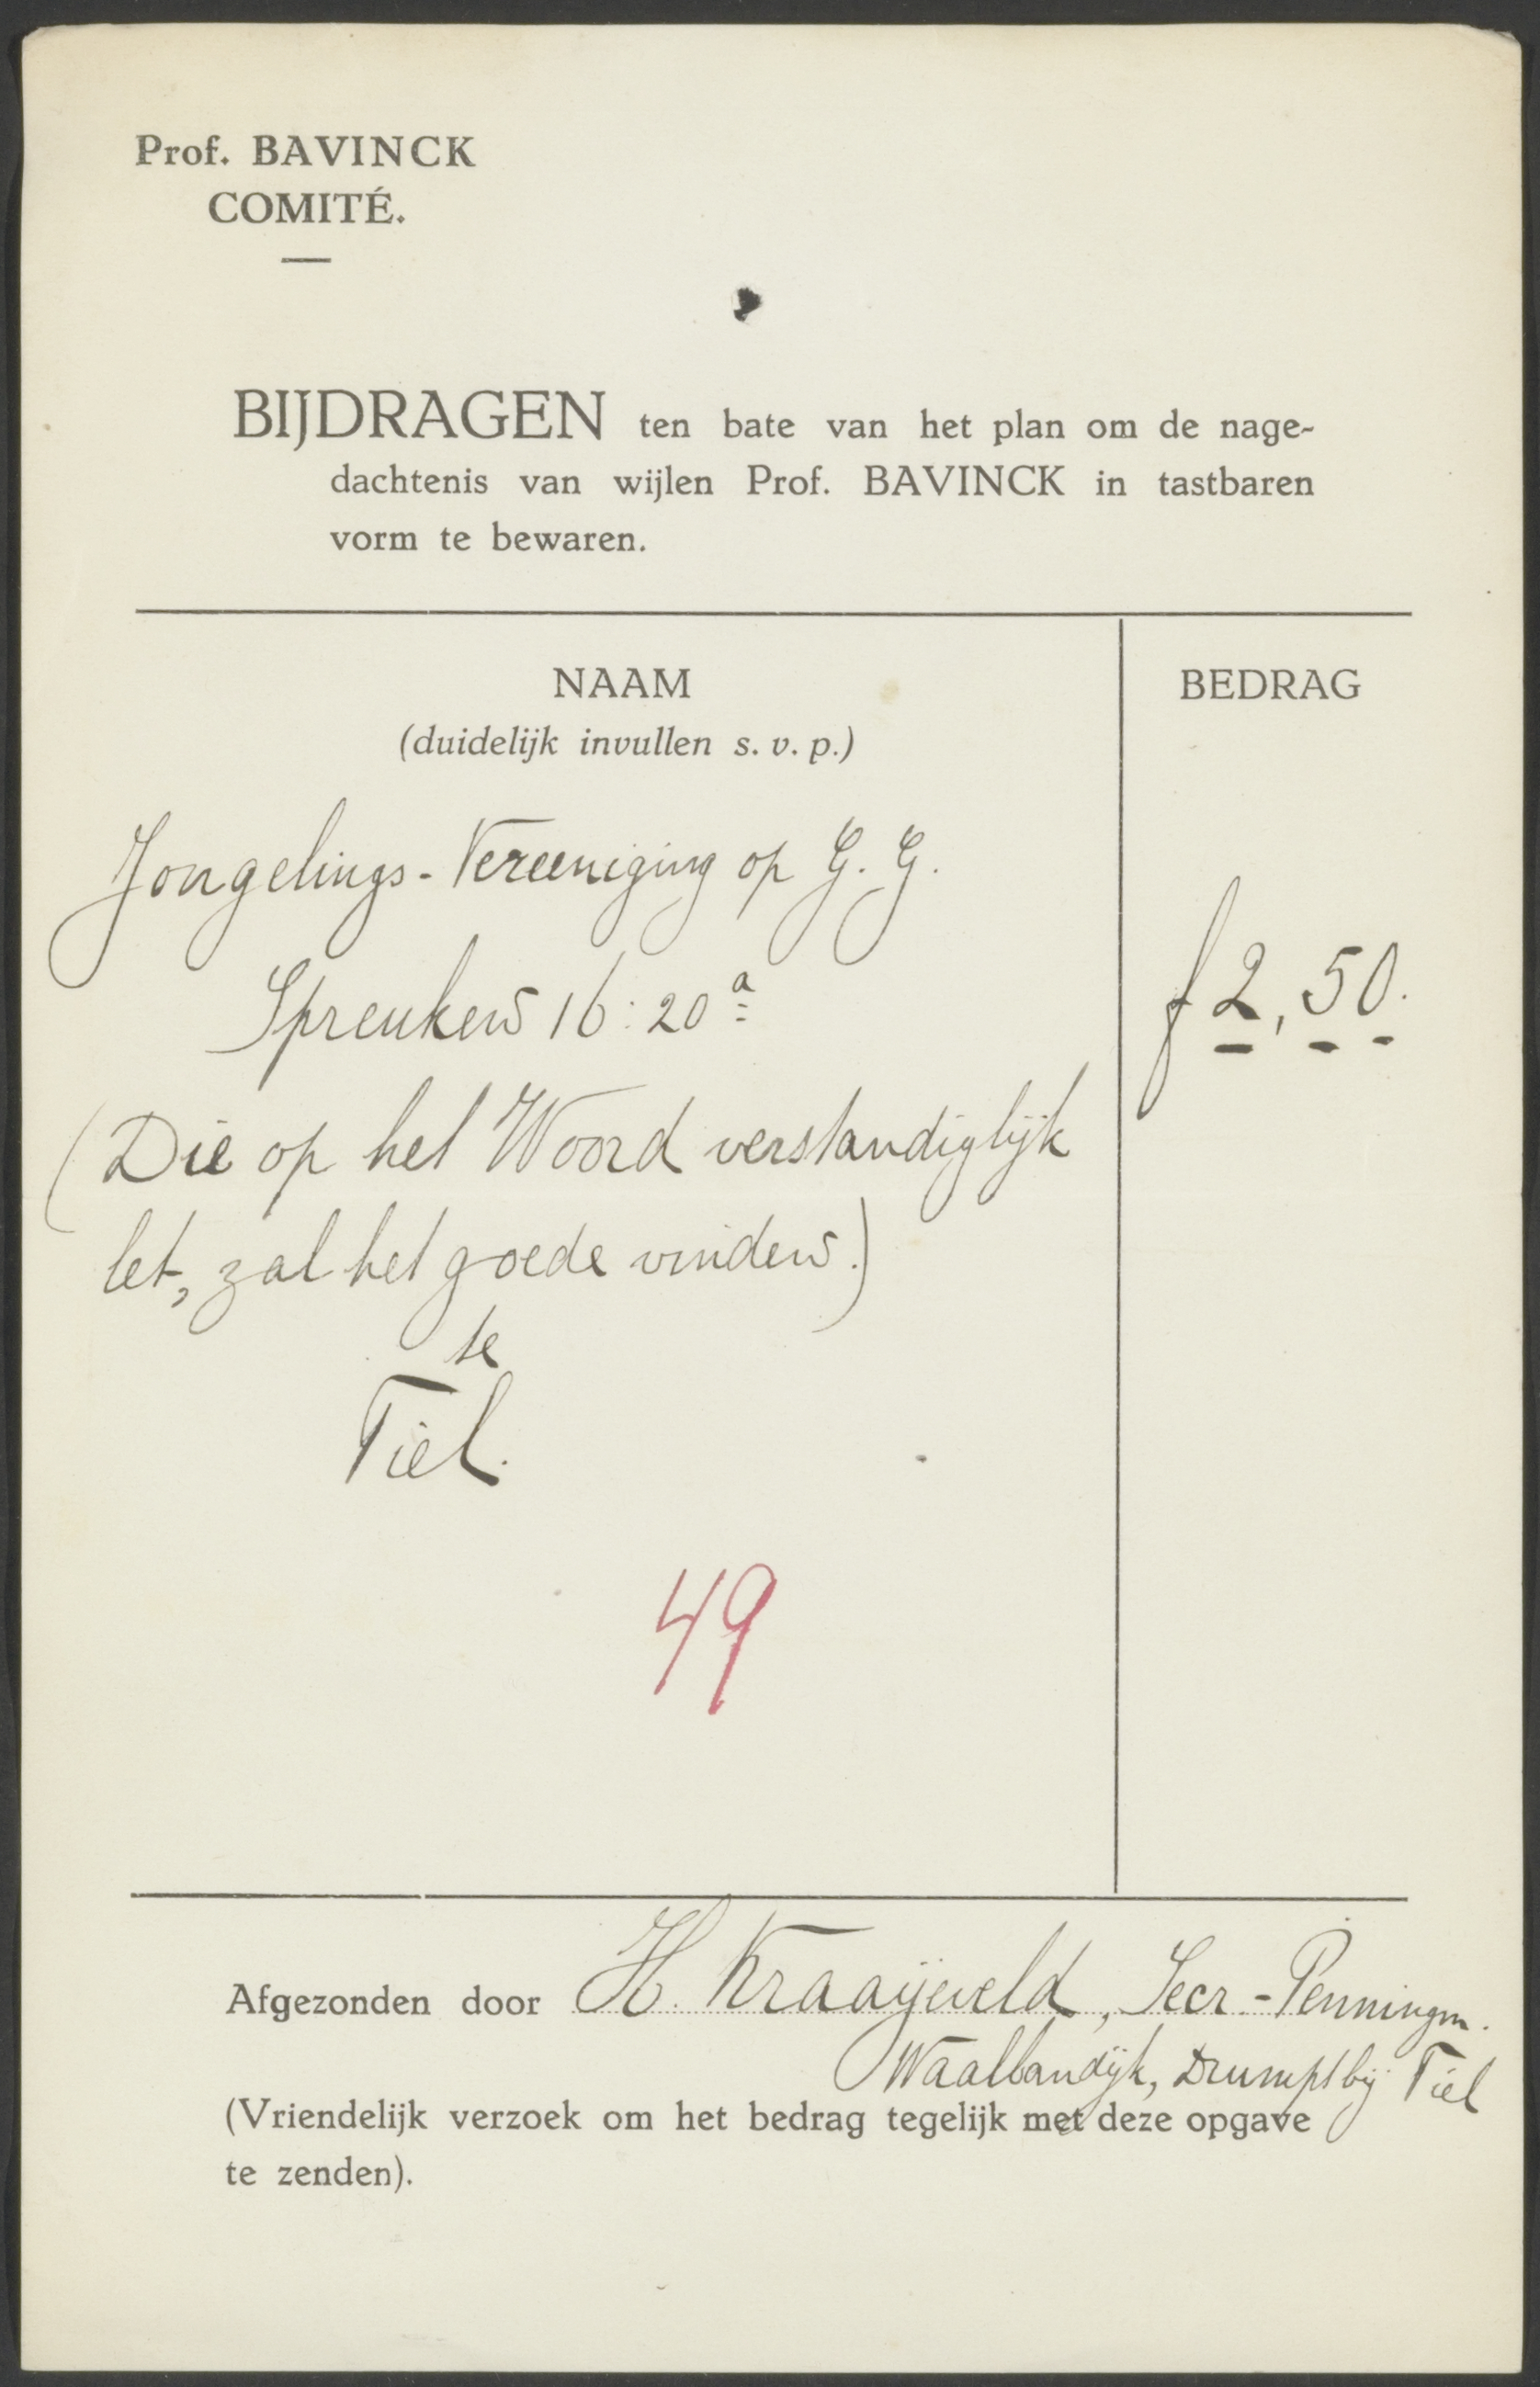 Prof. BAVINCK
COMITÉ.
BIJDRAGEN ten bate van het plan om de nage-
dachtenis van wijlen Prof. BAVINCK in tastbaren
vorm te bewaren.
NAAM
BEDRAG
(duidelijk invullen s. v. p.)
Jongelings-Vereeniging op G. G.
Spreuken 16:20a
f 2,50.
(Die op het Woord verstandiglijk
let, zal het goede vinden.)
te
Tiel.
49
Afgezonden door H. Kraaijeveld, Secr.-Penningm.
Waalbandijk, Drumpt bij Tiel
(Vriendelijk verzoek om het bedrag tegelijk met deze opgave
te zenden).